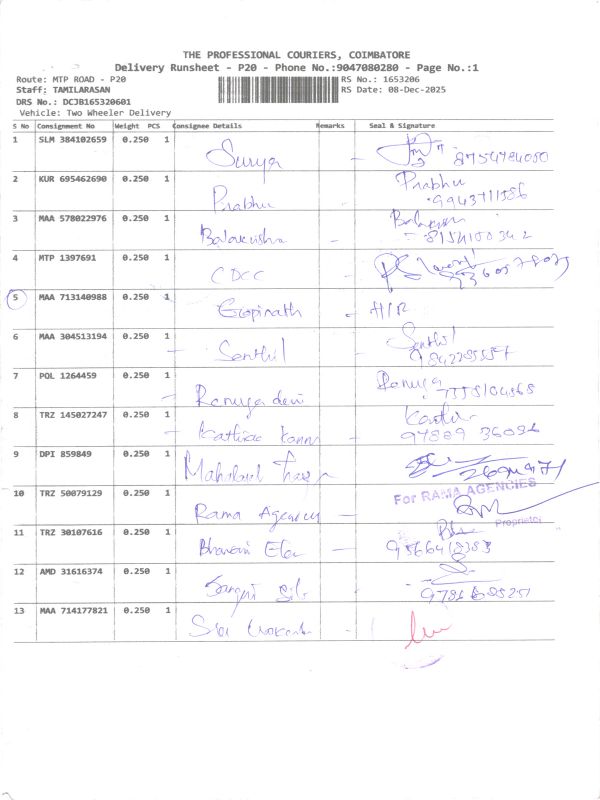 THE PROFESSIONAL COURIERS, COIMBATORE
Delivery Runsheet - P20 - Phone No.:9047080280 - Page No.:1
Route: MTP ROAD - P20
RS No.: 1653206
Staff: TAMILARASAN
RS Date: 08-Dec-2025
DRS No.: DCJB165320601
Vehicle: Two Wheeler Delivery
S No Consignment No Weight PCS Consignee Details Remarks Seal & Signature
1 SLM 384102659 0.250 1 Surya - 8754784080
2 KUR 695462690 0.250 1 Prabhu Prabhu
9943711586
3 MAA 578022976 0.250 1 Balakrishna -
8154100342
4 MTP 1397691 0.250 1 CDCC -
5 MAA 713140988 0.250 1 Gopinath -
6 MAA 304513194 0.250 1 Senthil - Senthil
7 POL 1264459 0.250 1 Ramya devi Ramya
7358104568
8 TRZ 145027247 0.250 1 -
97889 36096
9 DPI 859849 0.250 1
10 TRZ 50079129 0.250 1 Rama Agency - For RAMA AGENCIES
Proprietor
11 TRZ 30107616 0.250 1 Bhavani -
9566418383
12 AMD 31616374 0.250 1
13 MAA 714177821 0.250 1 -